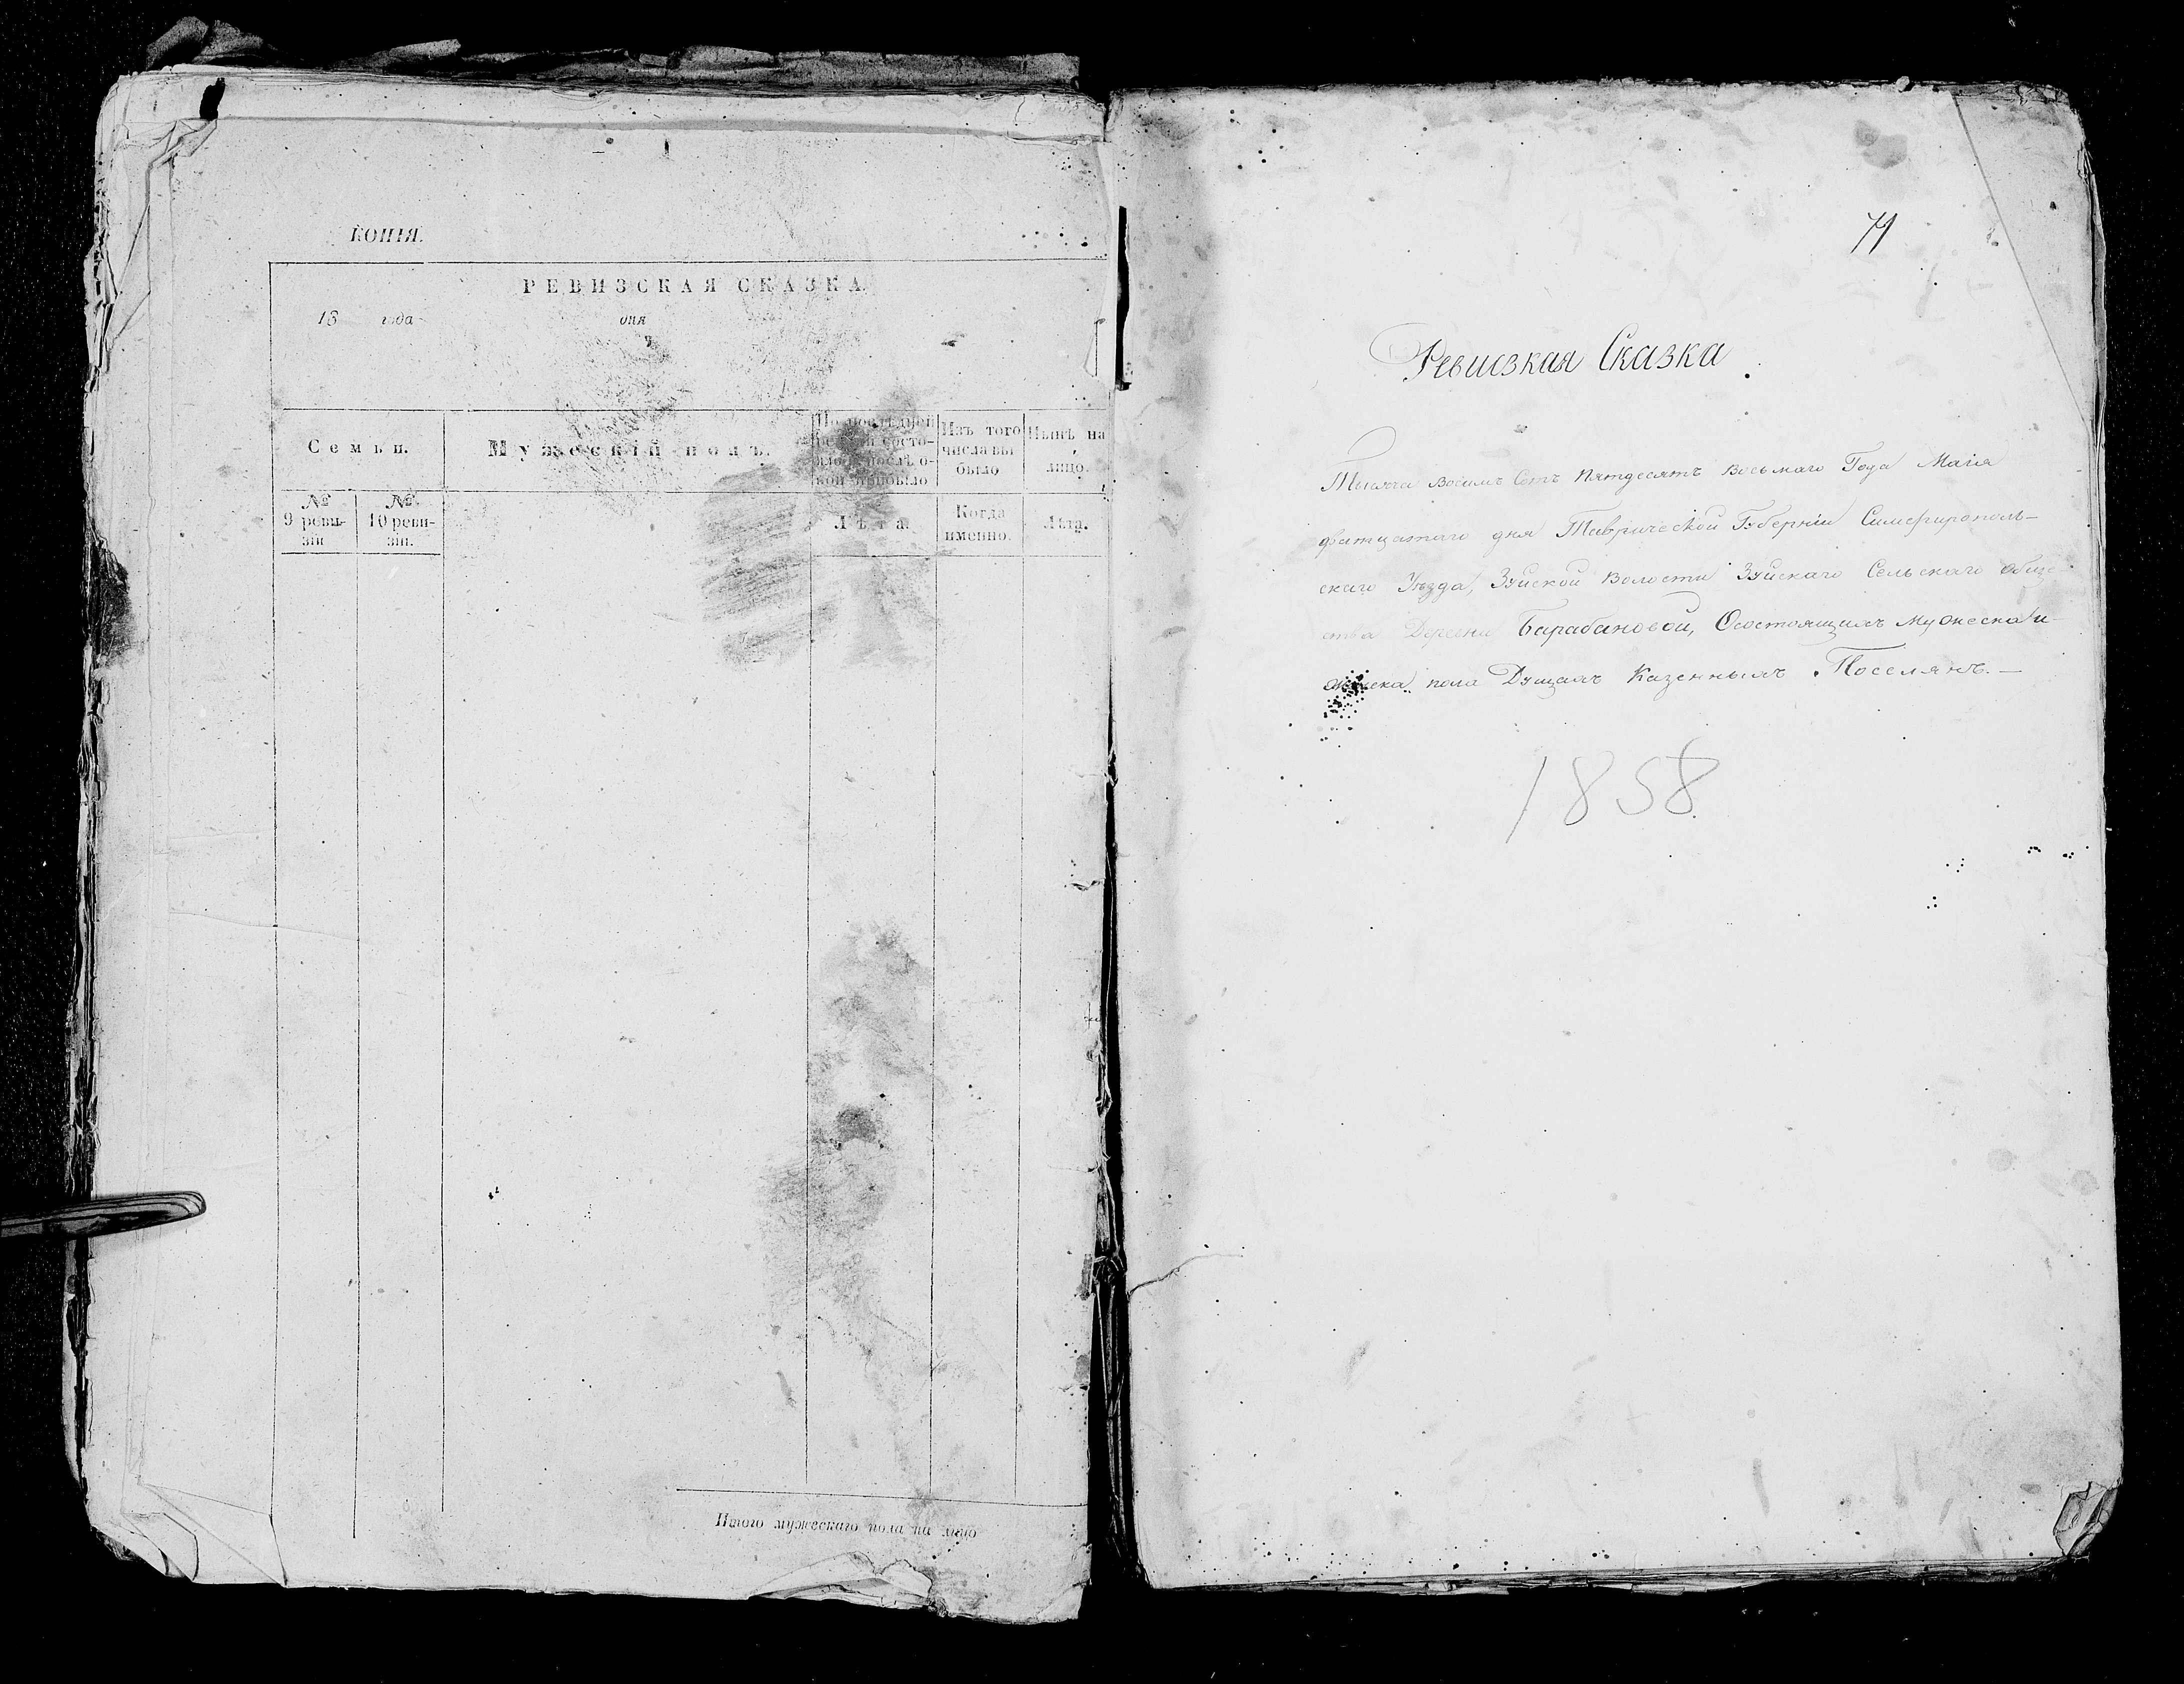 КОПІЯ.
РЕВИЗСКАЯ СКАЗКА
18 года дня
Семьи.
Мужескій полъ.
По последней
состо-
после о-
ной прибыло
Изъ того
числа вы-
было
Нынѣ на
лицо.
№
9 реви-
зіи
№
10 реви-
зіи.
Лѣта.
Когда
именно.
Лѣта.
Итого мужескаго пола на лицо
71
Ревизкая Сказка
Тысяча восемь Сотъ Пятдесятъ Восьмаго Года Маія
дватцатаго дня Таврической Губерніи Симферополь-
скаго Уѣзда, Зуйской Волости Зуйскаго Сельскаго обще
ства Деревни Барабановой, О состоящихъ мужеска и
женска пола Душахъ Казенныхъ Поселянъ.—
1858